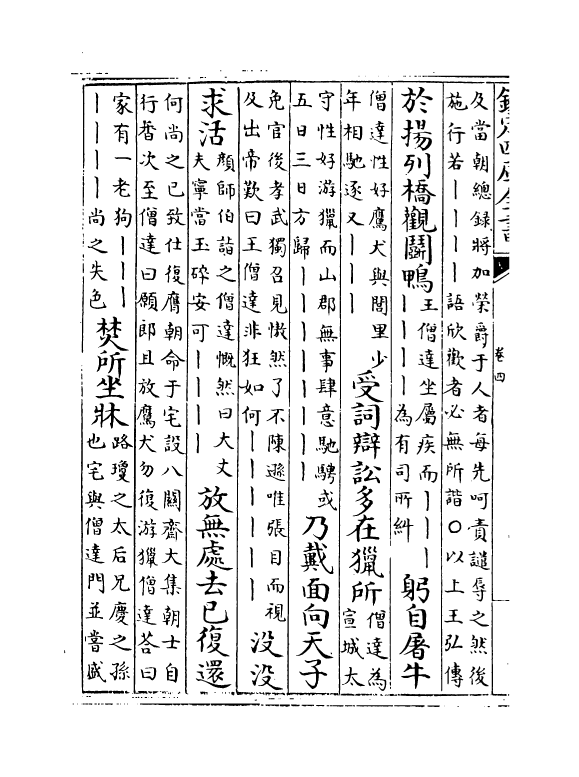 欽定四庫全書
卷四
及當朝總録將加榮爵于人者每先呵責譴辱之然後
施行若｜｜｜｜語欣歡者必無所諧○以上王弘傳
於揚列橋觀鬭鴨
王僧達坐屬疾而｜｜｜
｜｜｜｜為有司所糾
躬自屠牛
僧達性好鷹犬與閭里少
年相馳逐又｜｜｜｜
受詞辯訟多在獵所
僧達為
宣城太
守性好游獵而山郡無事肆意馳騁或
五日三日方歸｜｜｜｜｜｜｜｜
乃戴面向天子
免官後孝武獨召見慠然了不陳遜唯張目而視
及出帝歎曰王僧達非狂如何｜｜｜｜｜｜
没没
求活
顔師伯詣之僧達慨然曰大丈
夫寧當玉碎安可｜｜｜｜
放無處去已復還
何尚之已致仕復膺朝命于宅設八關齋大集朝士自
行香次至僧達曰願郎且放鷹犬勿復游獵僧達荅曰
家有一老狗｜｜｜
｜｜｜｜尚之失色
焚所坐牀
路瓊之太后兄慶之孫
也宅與僧達門並嘗盛